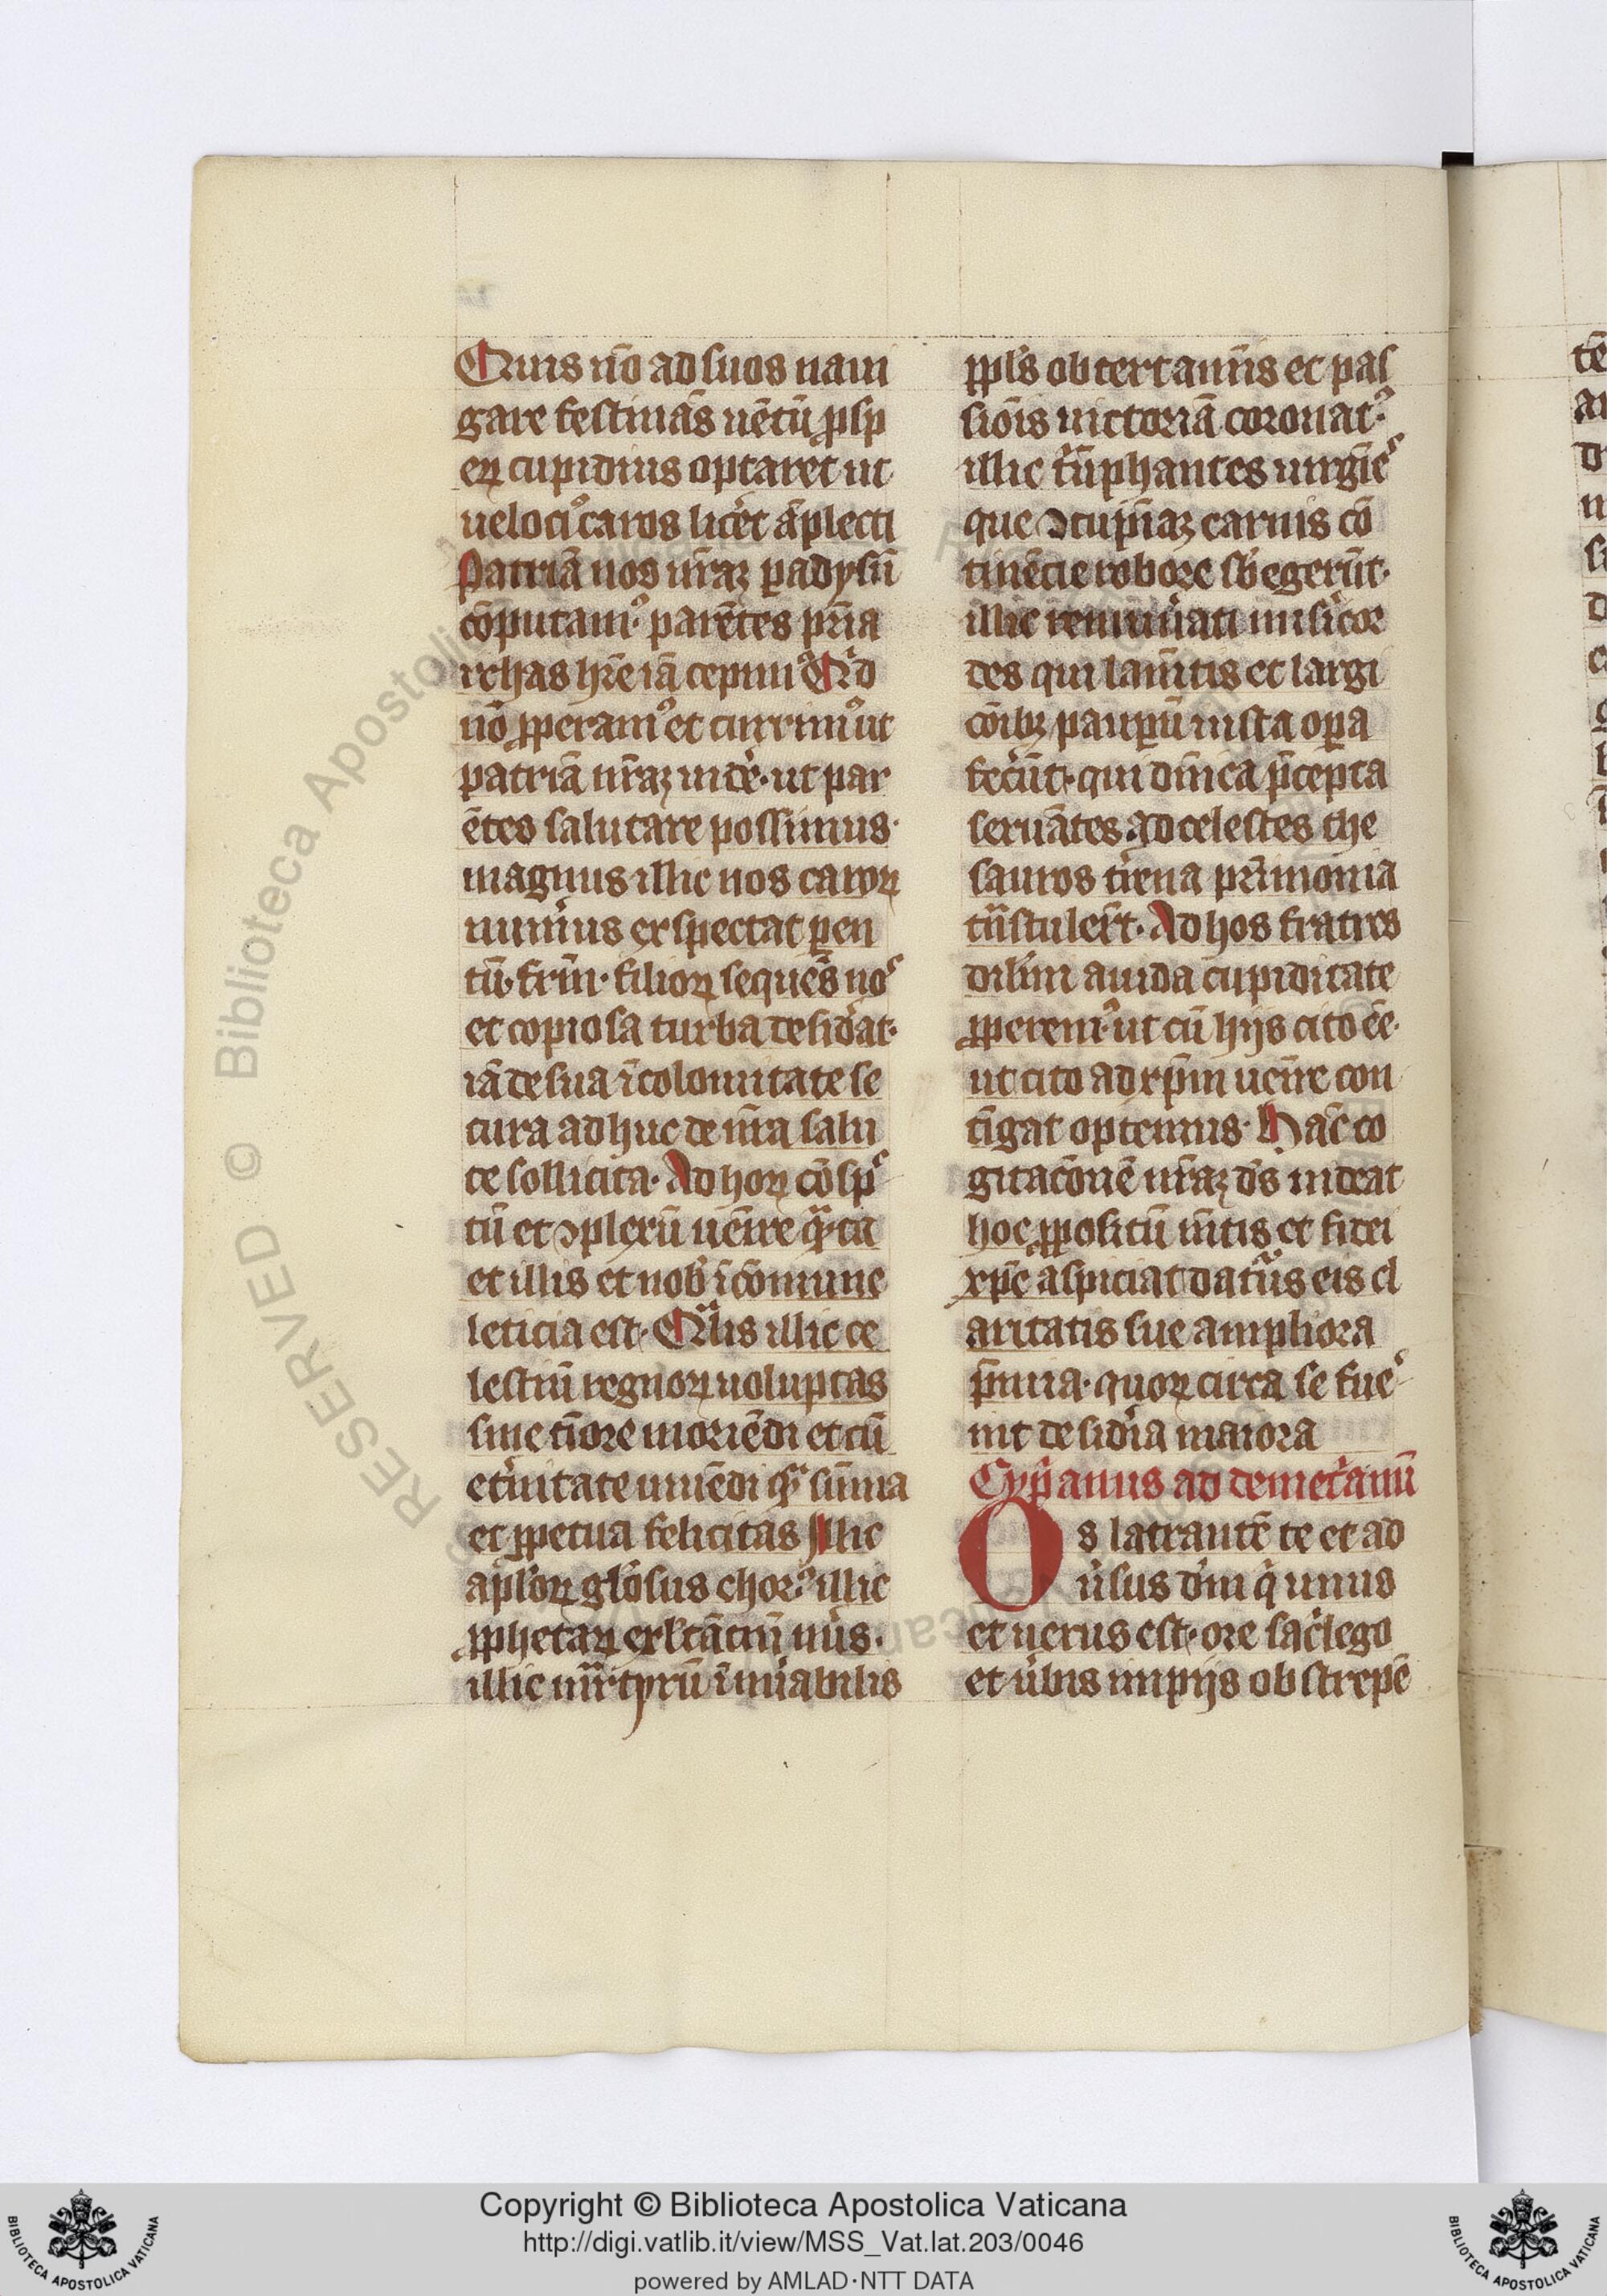 Quis nō ad suos naui
gare festinās uētū ꝓsp
eꝝ cupidius optaret ut
uelociꝰ caros licet āplecti
Patriā nos nr̄aꝫ ꝑadysū
cōputamꝰ parētes pr̄ia
rchas hr̄e iā cepimꝰ Qͥd
nō ꝓperamꝰ et currimꝰ ut
patriā nr̄aꝫ uidē· ut par
ētes salutare possimus·
magnus illic nos caroꝝ
numͥus exspectat ꝑen
tū· frm̄· filioꝝ sequēs nos
et copiosa turba desidat·
iā de sua īcolomitate se
cura adhuc de nr̄a salu
te sollicita· Ad hoꝝ cōspc
tū et ꝯplexū uenīre qͣ̄ta
et illis et nob ī cōmune
leticia est· Qͣlis illic ce
lestiū regnoꝝ uoluptas
sine tīore moriēdi et cū
etnitate uiuēdi qͣ̄ sūma
et ꝑpetua felicitas Illic
apl'oꝝ gl'osus chorꝰ illic
ꝓphetaꝝ exl'tātiū nus·
illic mr̄tyrū īnuabilis
ppl's ob certaminīs et pas
siōis uictoriā coronatꝰ
illic tͥūphantes uirgīes
que ꝯcupīaꝫ carnis cō
tinēcie robore sb'egerūt·
illic remunati misicor
des qui lanītis et largi
cōibꝫ pauꝑū iusta oꝑa
fecūt· qui dn̄ica p̄cepta
seruātes ad celestes the
sauros trena pr̄imonia
tn̄stulert· Ad hos fratres
dilīm auida cupiditate
ꝓperemꝰ ut cū hijs cito eē·
ut cito ad xp̄m uenīre con
tīgat optemus· Hac̄ co
gitacōnē nr̄aꝫ ds̄ uideat
hoc ꝓpositū mn̄tis et fidei
xpc̄ aspiciat datuͬs eis cl
aritatis sue ampliora
p̄mia· quoꝝ circa se fue
rint desidia maiora
Cypanus ad demetanū
Os latrantē te et ad
usus dm̄ qͥ unus
et uerus est· ore sac̄lego
et ubis impijs obstrepē
Copyright © Biblioteca Apostolica Vaticana
http://digi.vatlib.it/view/MSS_Vat.lat.203/0046
powered by AMLAD·NTT DATA
BIBLIOTECA APOSTOLICA VATICANA
BIBLIOTECA APOSTOLICA VATICANA